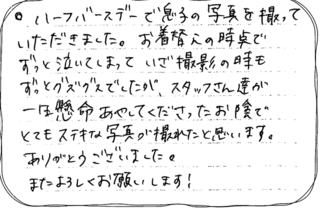 。ハーフバースデーで息子の写真を撮って
いただきました。お着替えの時点で
ずっと泣いてしまって いざ撮影の時も
ずっとグズグズでしたが、スタッフさん達が
一生懸命あやしてくださったお陰で
とてもステキな写真が撮れたと思います。
ありがとうございました。
またよろしくお願いします!